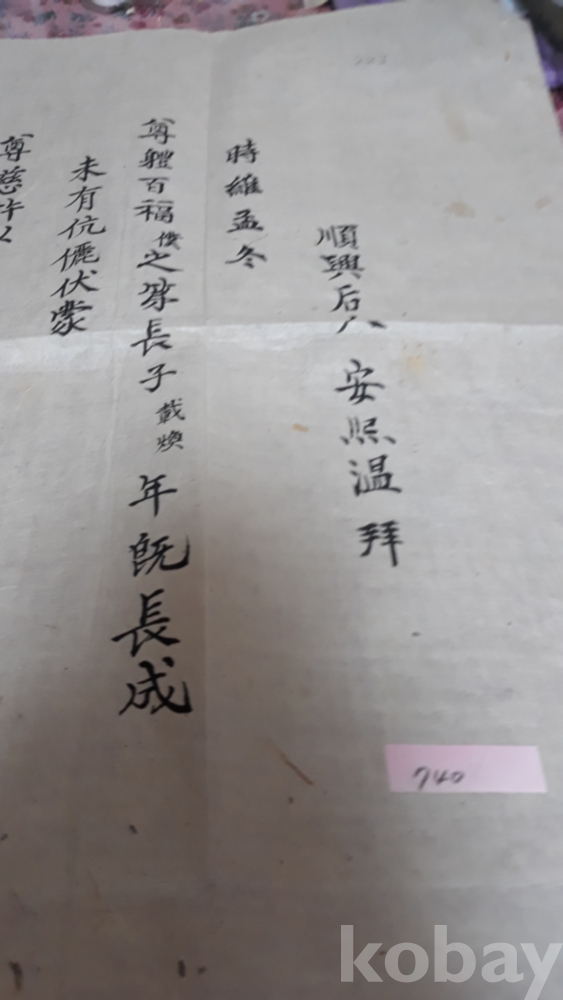 順興后人 安熙温 拜
時維孟冬
尊體百福 僕之 長子 載煥 年既長成
未有伉儷伏蒙
尊慈許以
740
kobay